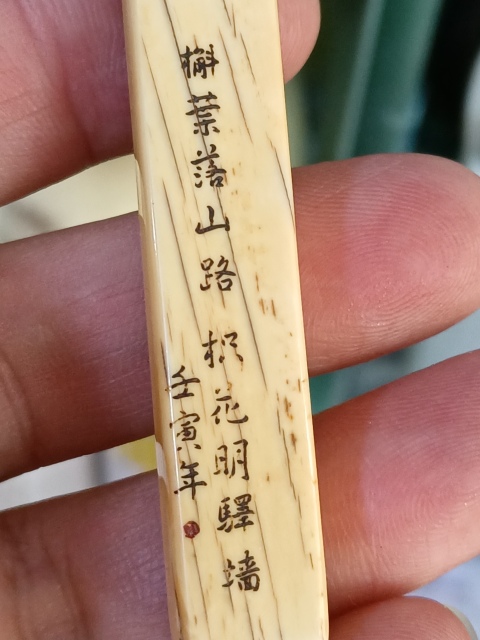 槲葉落山路 枳花明驛墻
壬寅年